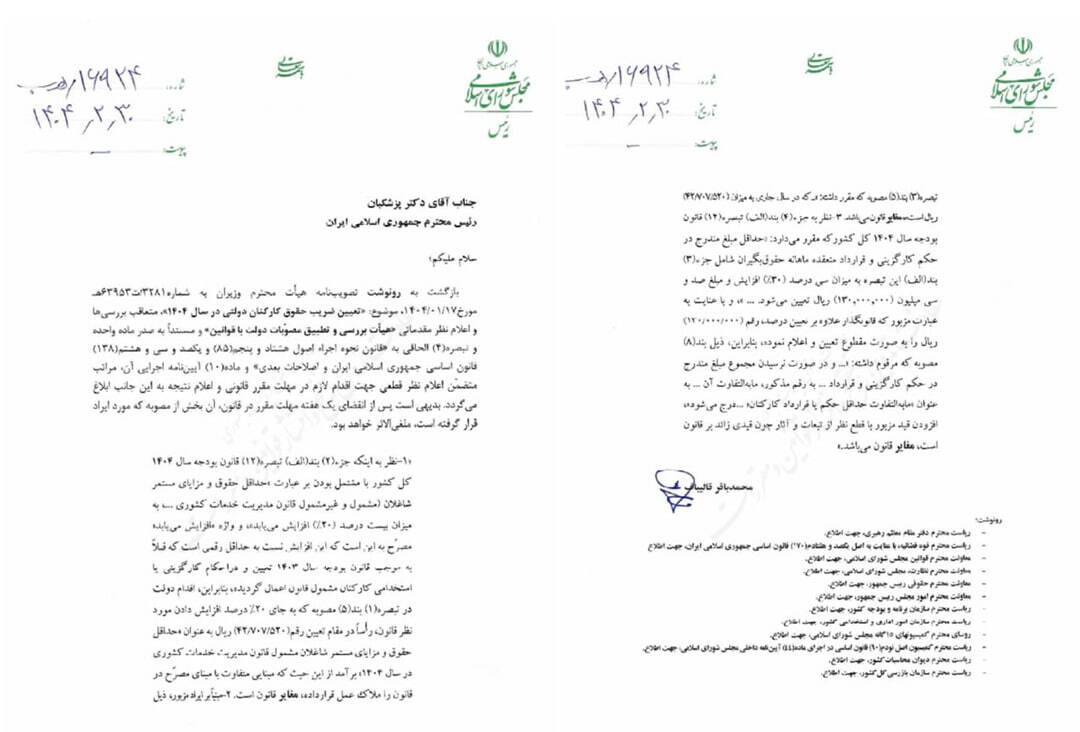 جمهوری اسلامی ایران
مجلس شورای اسلامی
رئیس
شماره: ۱۶۹۲۴/هـ‌ب
تاریخ: ۱۴۰۴/۲/۳۰
پیوست: –
جناب آقای دکتر پزشکیان
رئیس محترم جمهوری اسلامی ایران
سلام علیکم؛
بازگشت به رونوشت تصویب‌نامه هیأت محترم وزیران به شماره۳۲۸۱/ت۶۳۹۵۳هـ
مورخ۱۴۰۴/۰۱/۱۷، موضوع: «تعیین ضریب حقوق کارکنان دولتی در سال ۱۴۰۴»، متعاقب بررسی‌ها
و اعلام نظر مقدماتی «هیأت بررسی و تطبیق مصوّبات دولت با قوانین» و مستنداً به صدر ماده واحده
و تبصره(۴) الحاقی به «قانون نحوه اجراء اصول هشتاد و پنجم(۸۵) و یکصد و سی و هشتم(۱۳۸)
قانون اساسی جمهوری اسلامی ایران و اصلاحات بعدی» و ماده(۱۰) آیین‌نامه اجرایی آن، مراتب
متضمّن اعلام نظر قطعی جهت اقدام لازم در مهلت مقرر قانونی و اعلام نتیجه به این جانب ابلاغ
می‌گردد. بدیهی است پس از انقضای یک هفته مهلت مقرر در قانون، آن بخش از مصوبه که مورد ایراد
قرار گرفته است، ملغی‌الاثر خواهد بود.
«۱-نظر به اینکه جزء(۲) بند(الف) تبصره(۱۲) قانون بودجه سال ۱۴۰۴
کل کشور با مشتمل بودن بر عبارت «حداقل حقوق و مزایای مستمر
شاغلان (مشمول و غیرمشمول قانون مدیریت خدمات کشوری ...، به
میزان بیست درصد (۲۰٪) افزایش می‌یابد»، و واژ‌ه «افزایش می‌یابد»
مصرّح به این است که این افزایش نسبت به حداقل رقمی است که قبلاً
به موجب قانون بودجه سال ۱۴۰۳ تعیین و در احکام کارگزینی یا
استخدامی کارکنان مشمول قانون اعمال گردیده، بنابراین، اقدام دولت
در تبصره(۱) بند(۵) مصوبه که به جای ۲۰٪ درصد افزایش دادن مورد
نظر قانون، رأساً در مقام تعیین رقم(۴۲/۷۰۷/۵۲۰) ریال به عنوان «حداقل
حقوق و مزایای مستمر شاغلان مشمول قانون مدیریت خدمات کشوری
در سال ۱۴۰۴» برآمد از این حیث که مبنایی متفاوت با مبنای مصرّح در
قانون را ملاک عمل قرارداده، مغایر قانون است. ۲-مبنیاً بر ایراد مزبور، ذیل
جمهوری اسلامی ایران
مجلس شورای اسلامی
رئیس
شماره: ۱۶۹۲۴/هـ‌ب
تاریخ: ۱۴۰۴/۲/۳۰
پیوست: –
تبصره(۳) بند(۵) مصوبه که مقرر داشته: «.که در سال جاری به میزان (۴۲/۷۰۷/۵۲۰)
ریال است»، مغایر قانون می‌باشد. ۳-نظر به جزء(۴) بند(الف) تبصره(۱۲) قانون
بودجه سال ۱۴۰۴ کل کشور که مقرر می‌دارد: «حداقل مبلغ مندرج در
حکم کارگزینی و قرارداد منعقده ماهانه حقوق‌بگیران شامل جزء(۳)
بند(الف) این تبصره به میزان سی درصد (۳۰٪) افزایش و مبلغ صد و
سی میلیون (۱۳۰,۰۰۰,۰۰۰) ریال تعیین می‌شود. ... »، و با عنایت به
عبارت مزبور که قانونگذار علاوه بر تعیین درصد، رقم (۱۳۰/۰۰۰/۰۰۰)
ریال را به صورت مقطوع تعیین و اعلام نموده، بنابراین، ذیل بند(۸)
مصوبه که مرقوم داشته: «... و در صورت نرسیدن مجموع مبلغ مندرج
در حکم کارگزینی و قرارداد ... به رقم مذکور، مابه‌التفاوت آن ... به
عنوان «مابه‌التفاوت حداقل حکم یا قرارداد کارکنان» ...درج می‌شود»،
افزودن قید مزبور با قطع نظر از تبعات و آثار چون قیدی زائد بر قانون
است، مغایر قانون می‌باشد.»
محمدباقر قالیباف
رونوشت:
- ریاست محترم دفتر مقام معظم رهبری، جهت اطلاع.
- ریاست محترم قوه قضائیه، با عنایت به اصل یکصد و هفتادم(۱۷۰) قانون اساسی جمهوری اسلامی ایران، جهت اطلاع
- معاونت محترم قوانین مجلس شورای اسلامی، جهت اطلاع.
- معاونت محترم نظارت، مجلس شورای اسلامی، جهت اطلاع.
- معاونت محترم حقوقی رییس جمهور، جهت اطلاع.
- معاونت محترم امور مجلس رییس جمهور، جهت اطلاع.
- ریاست محترم سازمان برنامه و بودجه کشور، جهت اطلاع.
- ریاست محترم سازمان امور اداری و استخدامی کشور، جهت اطلاع.
- روسای محترم کمیسیونهای ۱۵ گانه مجلس شورای اسلامی، جهت اطلاع.
- ریاست محترم کمیسیون اصل نودم(۹۰) قانون اساسی در اجرای ماده(۴۴) آیین‌نامه داخلی مجلس شورای اسلامی، جهت اطلاع.
- ریاست محترم دیوان محاسبات کشور، جهت اطلاع.
- ریاست محترم سازمان بازرسی کل کشور، جهت اطلاع.